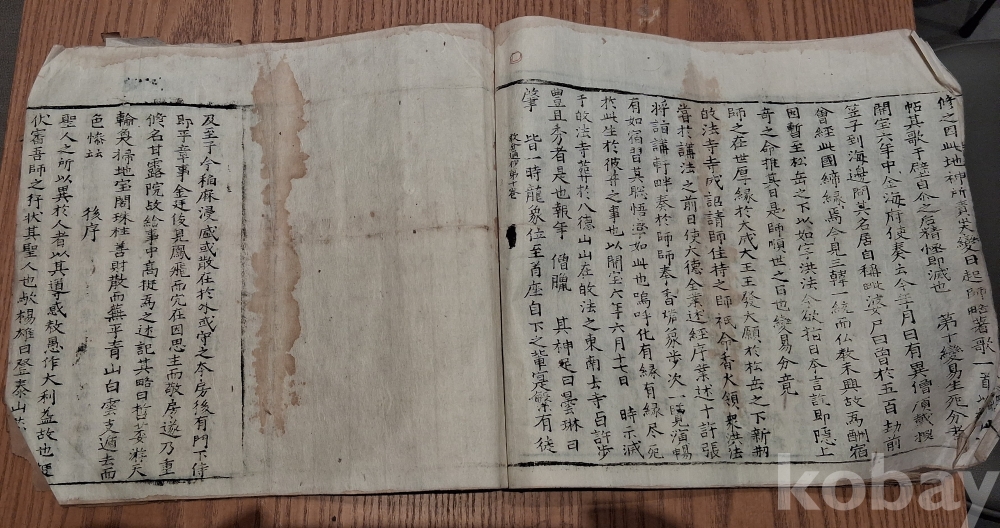 修之因此地神所責灾變日起師略著歌一首以
帖其歌于壁自介之后精恠即滅也 第十變易生死分者
開宝六年中金海府使奏云今年月日有異僧頂戴椶
笠子到海邊問其名居自称毗婆尸曰曽於五百劫前
曾經此國締縁焉今見三韓一統而仏教未興故為酬宿
因暫至松岳之下以如字洪法今欲指日本言訖即隱上
奇之命推其日是師順世之日也變易分竟
師之在世厚縁於大成大王王發大願於松岳之下新刱
㱕法寺寺成詔請師住持之師祇命香火領衆洪法
當於講法之前日使大德全業述經序業述十許張
將詣講軒畔奏於師師奉香爐象步次一覽消暢
有如宿習其聡悟率如此也嗚呼化有縁有縁尽死
於此生於彼甞之事也以開宝六年六月十七日 時示滅
于㱕法寺葬於八德山山在㱕法之東南去寺百許步
豊且秀者是也報年 僧臘 其神足曰曇琳曰
肇 皆一時龍象位至首座自下之輩寔繁有徒
第十卷
及至于今稲麻浸盛或散在於水或守之本房後有門下侍
郎平章事金廷俊見鳳飛而穴在因思主而敬房遂乃重
脩名甘露院故給事中髙挺為之述記其略曰哲萎㳽天
輪奐掃地宝閣珠柱善財散而蕪平青山白雲支遁去而
色慘玆 後序
聖人之所以異於人者以其導惑救愚作大利益故也
伏審吾師之行状其聖人也歟楊雄曰登泰山
kobay